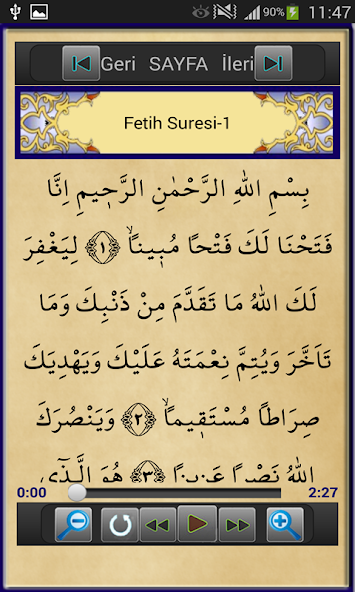 90% 11:47
Geri SAYFA İleri
Fetih Suresi-1
بِسْمِ اللهِ الرَّحْمٰنِ الرَّح۪يمِ اِنَّا
فَتَحْنَا لَكَ فَتْحًا مُب۪ينًاۙ ﴿١﴾ لِيَغْفِرَ
لَكَ اللهُ مَا تَقَدَّمَ مِنْ ذَنْبِكَ وَمَا
تَاَخَّرَ وَيُتِمَّ نِعْمَتَهُ عَلَيْكَ وَيَهْدِيَكَ
صِرَاطًا مُسْتَق۪يمًاۙ ﴿٢﴾ وَيَنْصُرَكَ
اللهُ نَصْرًا عَز۪يزًا ﴿٣﴾ هُوَ الَّذ۪ٓي
0:00 2:27